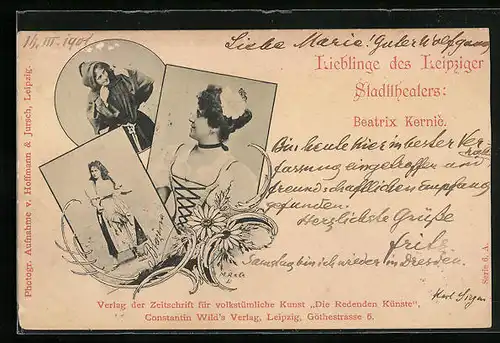 14/III. 1901
Liebe Marie! Guter Wolfgang
Lieblinge des Leipziger
Stadttheaters:
Beatrix Kernic.
Bin heute hier in bester Ver-
fassung eingetroffen und
freundschaftlichen Empfang
gefunden.
Herzlichste Grüße
Fritz
Samstag bin ich wieder in Dresden.
Photogr. Aufnahme v. Hoffmann & Jursch, Leipzig.
Serie 6. A.
Verlag der Zeitschrift für volkstümliche Kunst „Die Redenden Künste“,
Constantin Wild's Verlag, Leipzig, Göthestrasse 6.